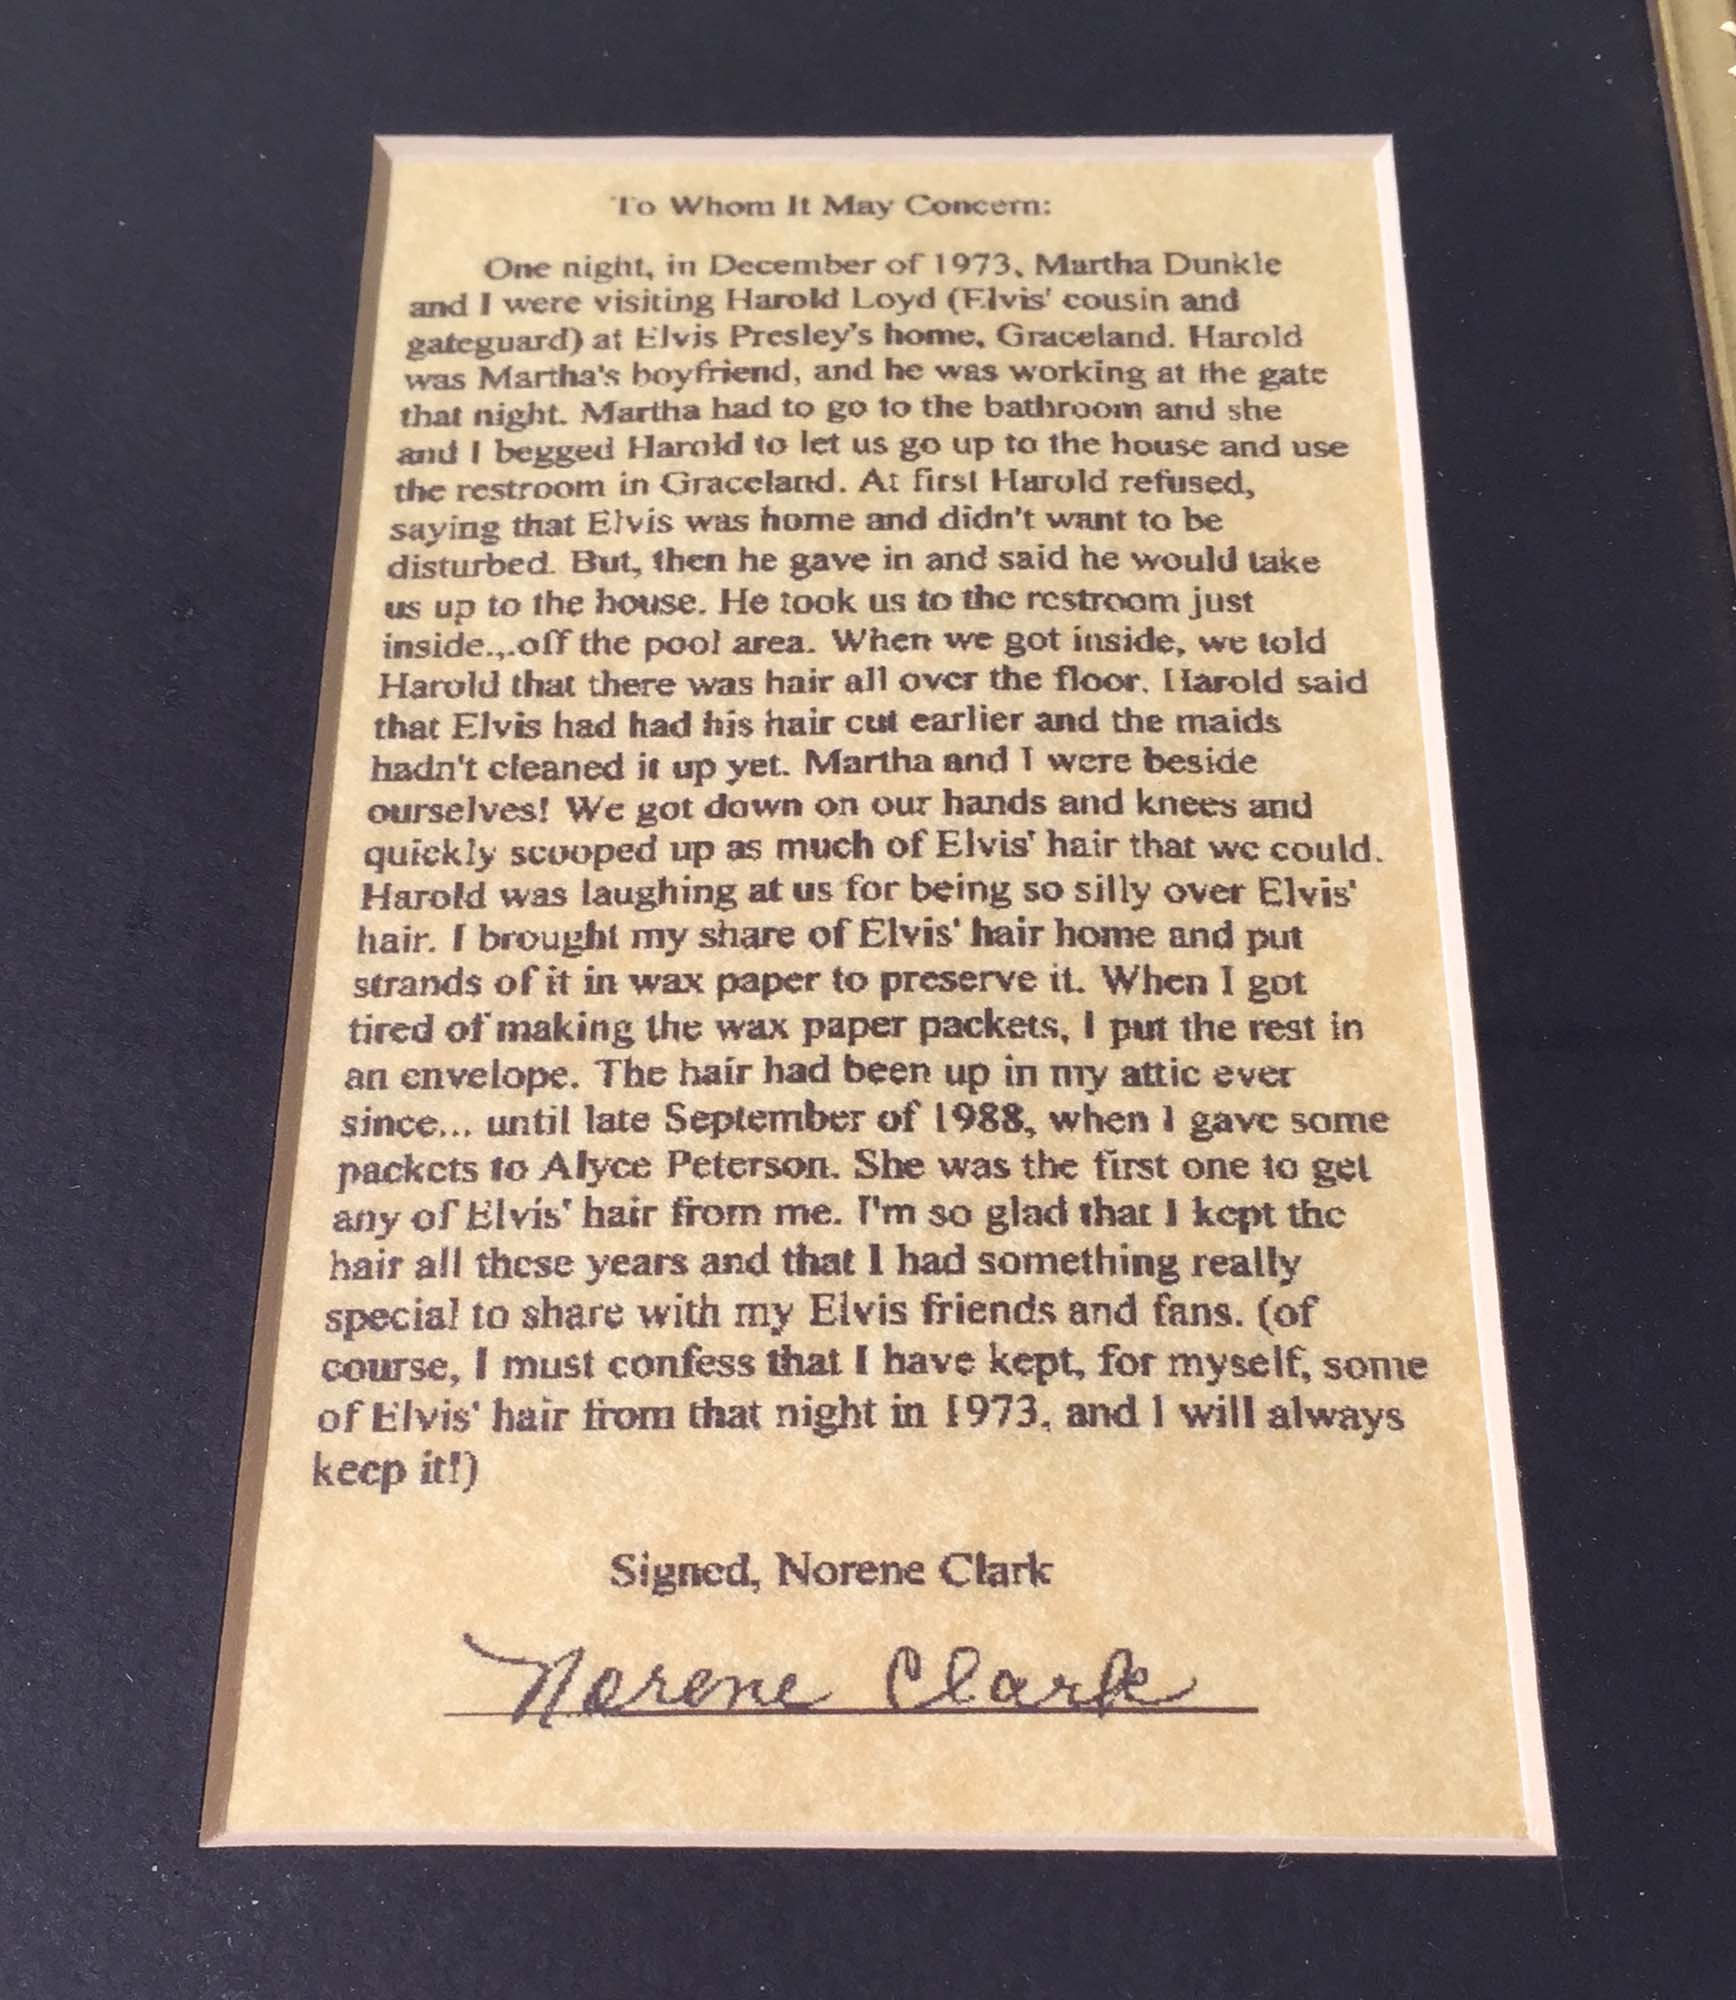 To Whom It May Concern:
One night, in December of 1973, Martha Dunkle
and I were visiting Harold Loyd (Elvis' cousin and
gateguard) at Elvis Presley's home, Graceland. Harold
was Martha's boyfriend, and he was working at the gate
that night. Martha had to go to the bathroom and she
and I begged Harold to let us go up to the house and use
the restroom in Graceland. At first Harold refused,
saying that Elvis was home and didn't want to be
disturbed. But, then he gave in and said he would take
us up to the house. He took us to the restroom just
inside...off the pool area. When we got inside, we told
Harold that there was hair all over the floor. Harold said
that Elvis had had his hair cut earlier and the maids
hadn't cleaned it up yet. Martha and I were beside
ourselves! We got down on our hands and knees and
quickly scooped up as much of Elvis' hair that we could.
Harold was laughing at us for being so silly over Elvis'
hair. I brought my share of Elvis' hair home and put
strands of it in wax paper to preserve it. When I got
tired of making the wax paper packets, I put the rest in
an envelope. The hair had been up in my attic ever
since... until late September of 1988, when I gave some
packets to Alyce Peterson. She was the first one to get
any of Elvis' hair from me. I'm so glad that I kept the
hair all these years and that I had something really
special to share with my Elvis friends and fans. (of
course, I must confess that I have kept, for myself, some
of Elvis' hair from that night in 1973, and I will always
keep it!)
Signed, Norene Clark
Norene Clark